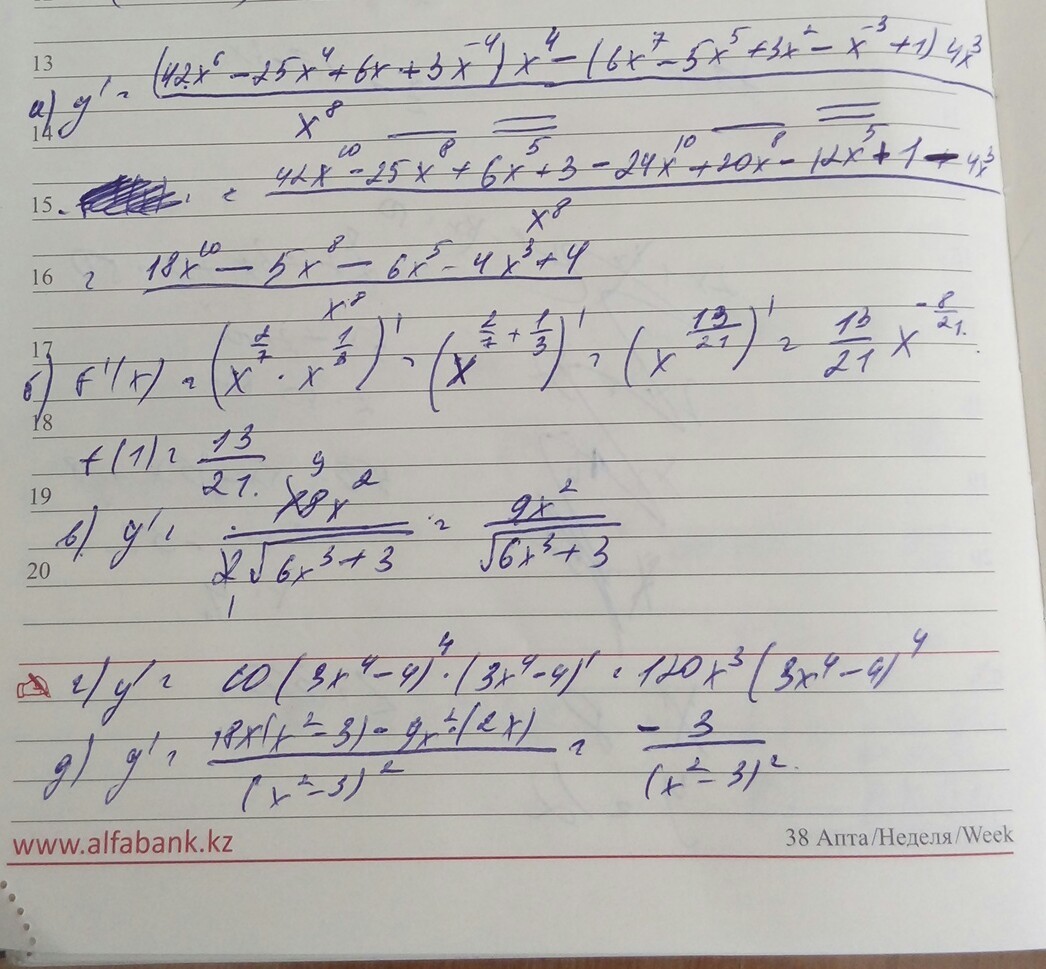 13
а) y' = (42x⁶ − 25x⁴ + 6x + 3x⁻⁴) x⁴ − (6x⁷ − 5x⁵ + 3x² − x⁻³ + 1) 4x³
x⁸
14
15 = 42x¹⁰ − 25x⁸ + 6x⁵ + 3 − 24x¹⁰ + 20x⁸ − 12x⁵ + 1 − 4x³
x⁸
16 = 18x¹⁰ − 5x⁸ − 6x⁵ − 4x³ + 4
x⁸
17
б) f'(x) = (x^(2/7) · x^(1/3))' = (x^(2/7 + 1/3))' = (x^(13/21))' = 13/21 x^(−8/21).
18
f(1) = 13/21.
19 9
в) y' = 18x² / 2√(6x³ + 3) = 9x² / √(6x³ + 3)
20
1
г) y' = 10 (3x⁴ − 4)⁴ · (3x⁴ − 4)' = 120x³ (3x⁴ − 4)⁴
д) y' = 18x(x² − 3) − 9x² · (2x) / (x² − 3)² = − 3 / (x² − 3)².
www.alfabank.kz 38 Апта/Неделя/Week